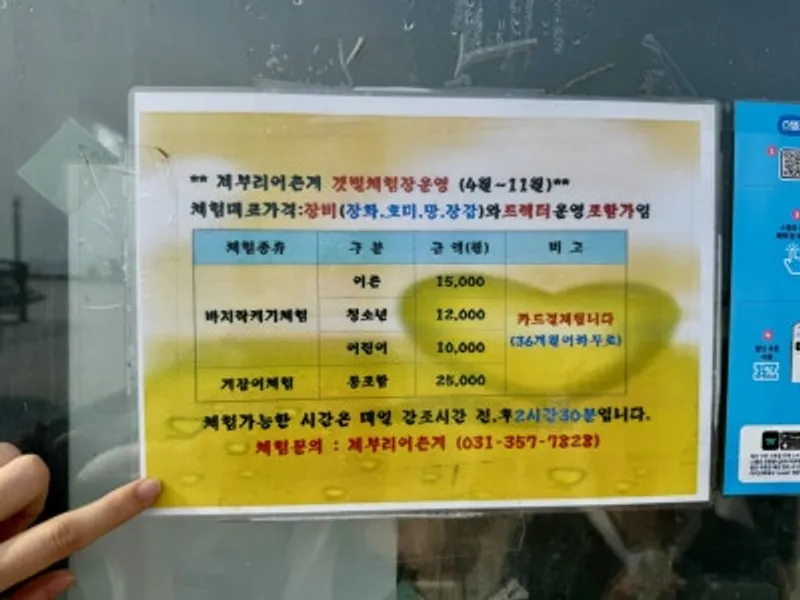 ** 제부리어촌계 갯벌체험장운영 (4월~11월)**
체험매표가격:장비(장화.호미.망.장갑)와트랙터운영포함가임
체험종류 구 분 금 액(원) 비 고
어른 15,000
바지락캐기체험 청소년 12,000 카드결제됩니다
(36개월이하무료)
어린이 10,000
게잡이체험 통포함 25,000
체험가능한 시간은 매일 간조시간 전.후2시간30분입니다.
체험문의 : 제부리어촌계 (031-357-7828)